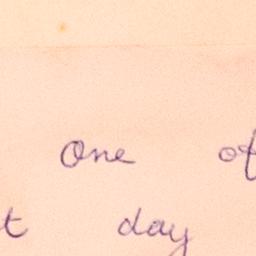 One of
t day